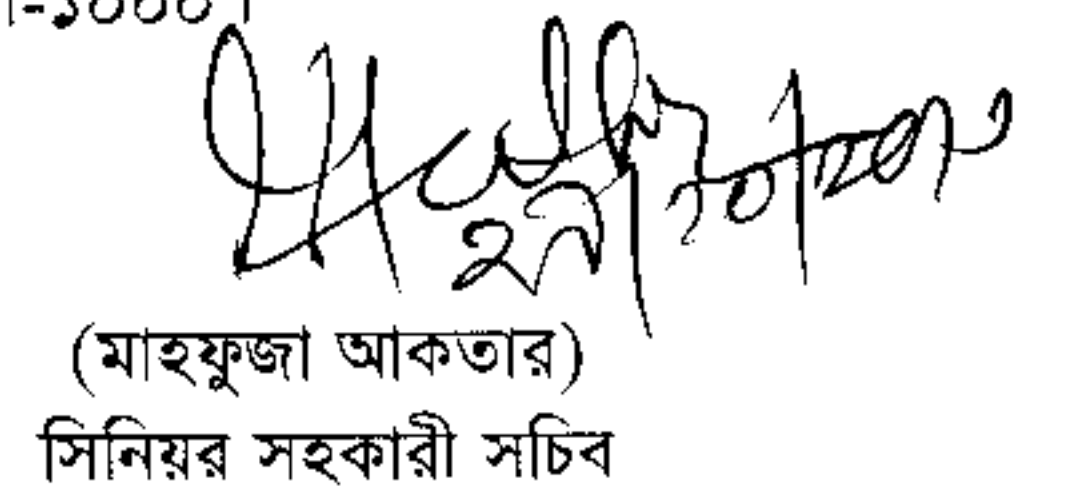 -১০০০।
(মাহফুজা আকতার)
সিনিয়র সহকারী সচিব